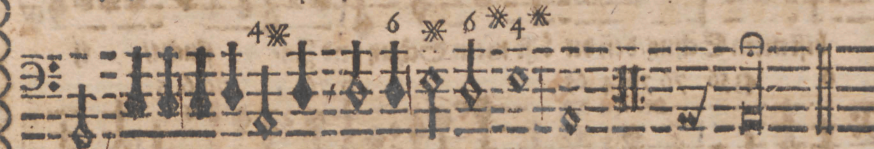 4 6 6 4